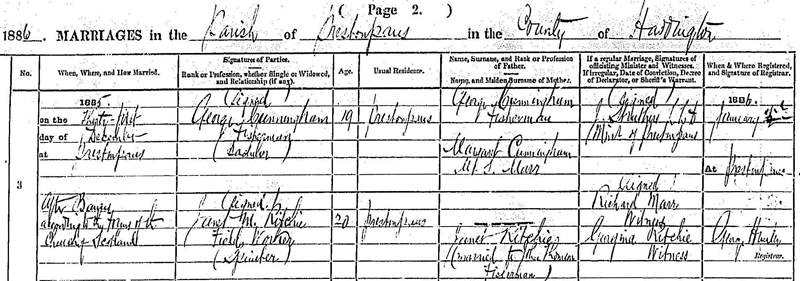 ( Page 2. )
1886. MARRIAGES in the Parish of Prestonpans in the County of Haddington
No.
When, Where, and How Married.
Signatures of Parties.
Rank or Profession, whether Single or Widowed, and Relationship (if any).
Age.
Usual Residence.
Name, Surname, and Rank or Profession of Father.
Name, and Maiden Surname of Mother.
If a regular Marriage, Signatures of officiating Minister and Witnesses.
If irregular, Date of Conviction, Decree of Declarator, or Sheriff's Warrant.
When & Where Registered, and Signature of Registrar.
3
1885.
on the Thirty-first
day of December
at Prestonpans
After Banns
according to the forms of the
Church of Scotland
(Signed)
George Cunningham
Fisherman
(Bachelor)
(Signed)
Janet M. Ritchie
Field Worker
(Spinster)
19
20
Prestonpans
Prestonpans
George Cunningham
Fisherman
Margaret Cunningham
M. S. Marr
Janet Ritchie
(married to
Fisherman)
(Signed)
Minr. of Prestonpans
(Signed)
Richard Marr
Witness
Georgina Ritchie
Witness
1886.
January
At Prestonpans
George
Registrar.